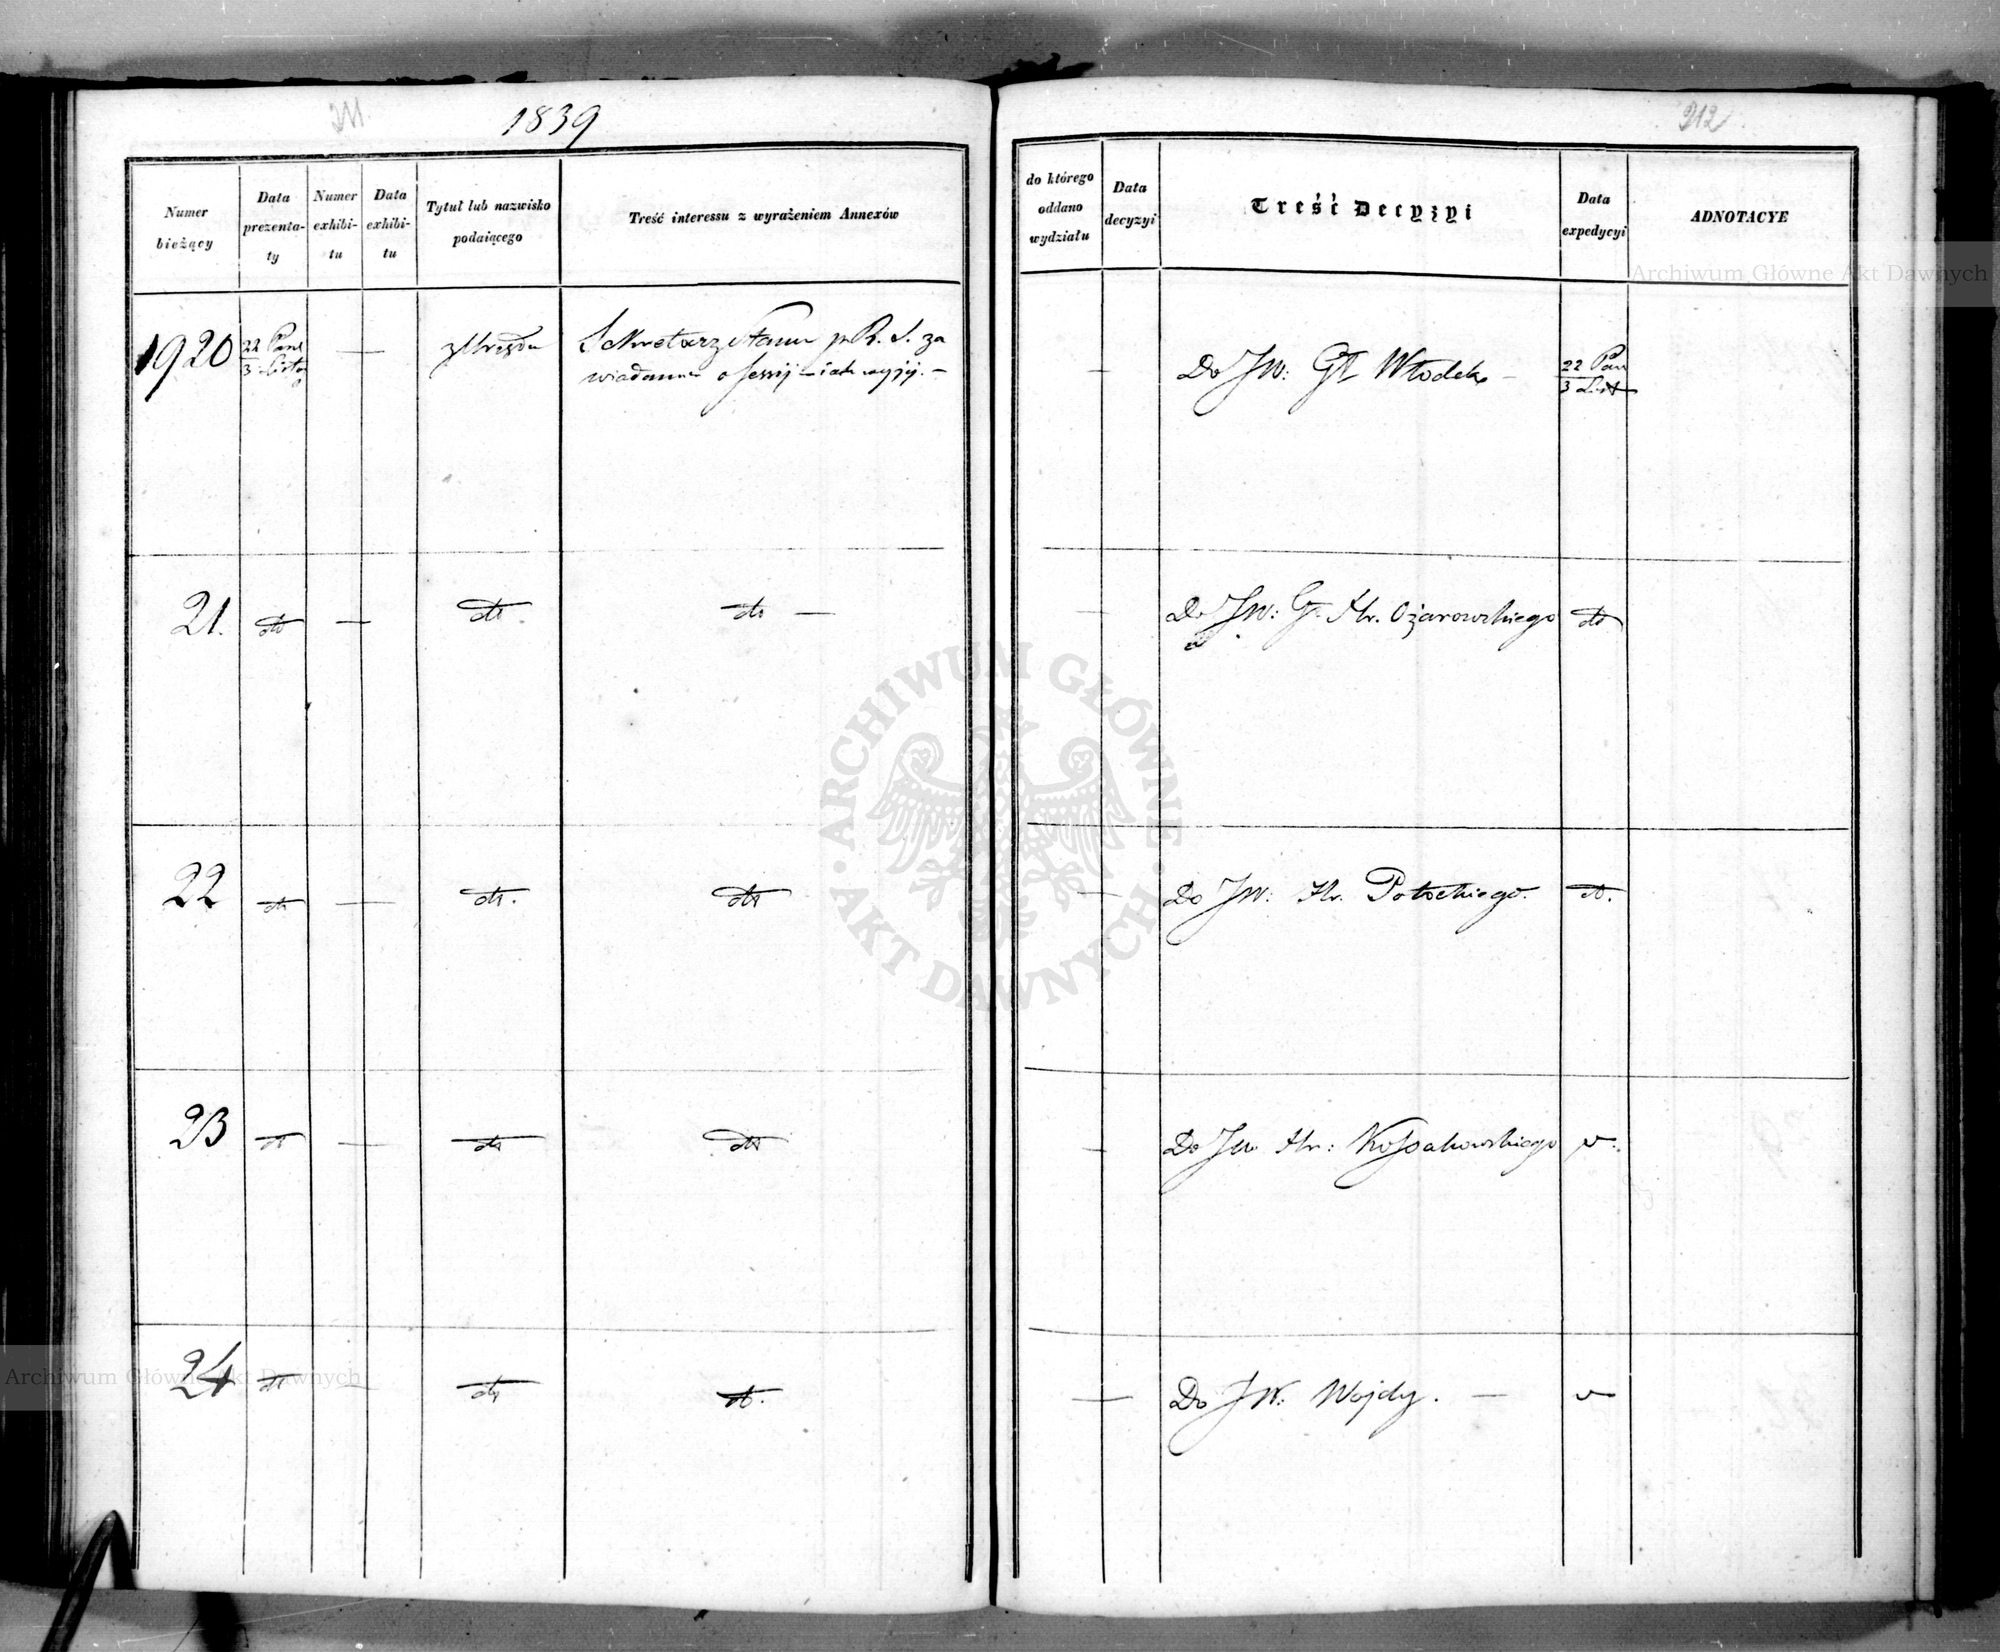 211.
1839
212
Numer bieżący
Data prezenta-ty
Numer exhibi-tu
Data exhibi-tu
Tytuł lub nazwisko podaiącego
Treść interessu z wyrażeniem Annexów
do którego oddano wydziału
Data decyzyi
Treść Decyzyi
Data expedycyi
ADNOTACYE
1920
22 Paź
3 Listo
—
z Urzędu
Sekretarz Stanu p R. S. za
wiadamia o sessij
—
Do JW: Gł Włodek —
22 Paź
3 List
21.
dto
—
dto.
dto —
—
Do JW: Gł. Hr. Ożarowskiego
dto
22
dto
—
dto.
dto
—
Do JW: Hr. Potockiego.
dto.
23
dto
—
dto
dto
—
Do JW Hr: Kossakowskiego
24
dto
—
dto
dto.
—
Do JW: Wojdy. —
ARCHIWUM GŁÓWNE · AKT DAWNYCH ·
Archiwum Główne Akt Dawnych
Archiwum Główne Akt Dawnych